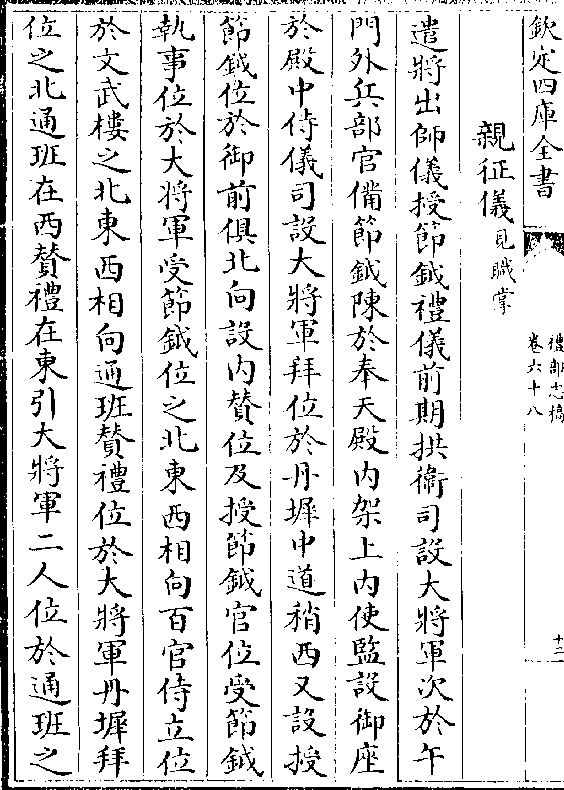 欽定四庫全書
禮部志稿
卷六十八
十二
親征儀見職掌
遣將出師儀授節鉞禮儀前期拱衛司設大將軍次於午
門外兵部官備節鉞陳於奉天殿内架上内使監設御座
於殿中侍儀司設大將軍拜位於丹墀中道稍西又設授
節鉞位於御前俱北向設内贊位及授節鉞官位受節鉞
執事位於大將軍受節鉞位之北東西相向百官侍立位
於文武樓之北東西相向通班贊禮位於大將軍丹墀拜
位之北通班在西贊禮在東引大將軍二人位於通班之